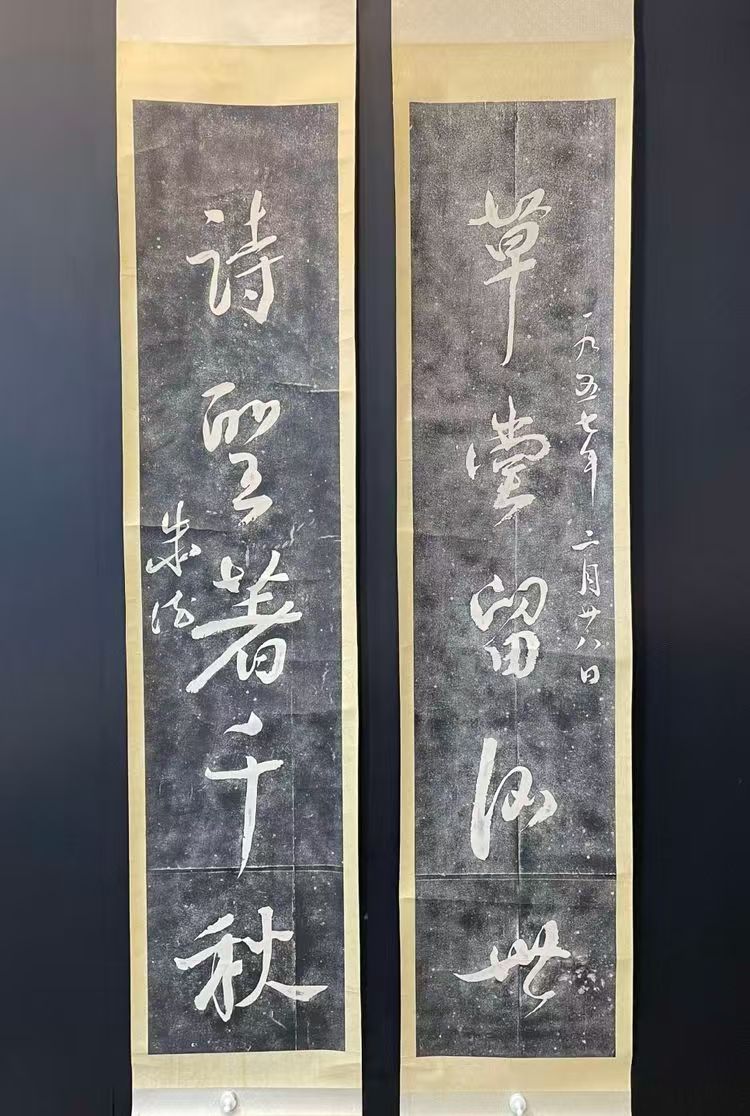 一九五七年 二月廿八日
草堂留后世
詩聖著千秋
朱德